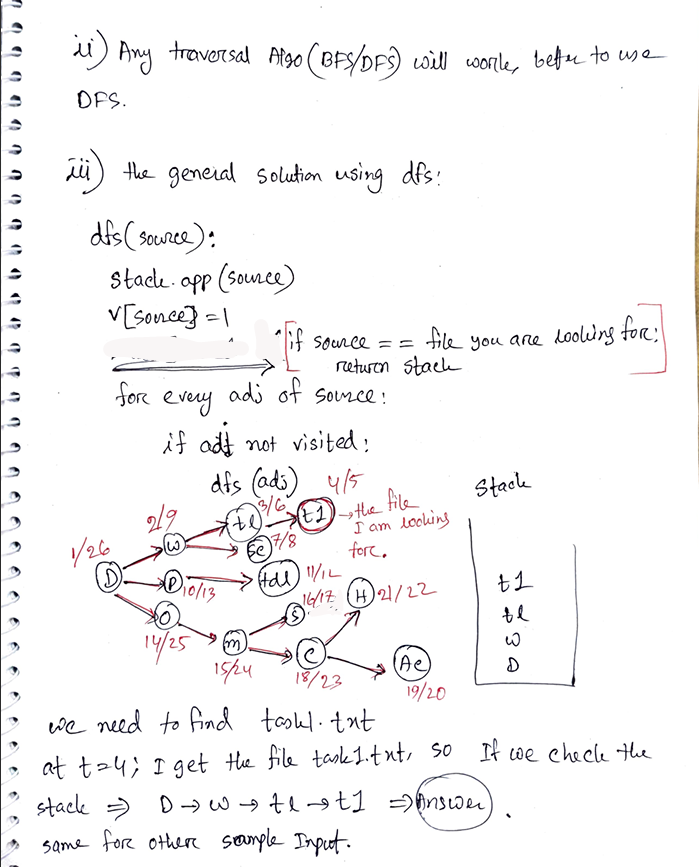 ii) Any traversal Algo (BFS/DFS) will work, better to use
DFS.
iii) the general solution using dfs:
dfs(source):
stack.app(source)
V[source] = 1
if source == file you are looking for:
return stack
for every adj of source:
if adj not visited:
dfs (adj)
4/5
Stack
2/9
3/6
tl
t1
→ the file
I am looking
for.
1/26
W
Sc
7/8
D
P
10/13
tdl
11/12
t1
tl
W
D
16/17
S
H
21/22
O
14/25
m
15/24
C
18/23
Ac
19/20
we need to find task1.txt
at t=4; I get the file task1.txt, so If we check the
stack ⇒ D → W → tl → t1 ⇒ Answer.
same for other sample Input.